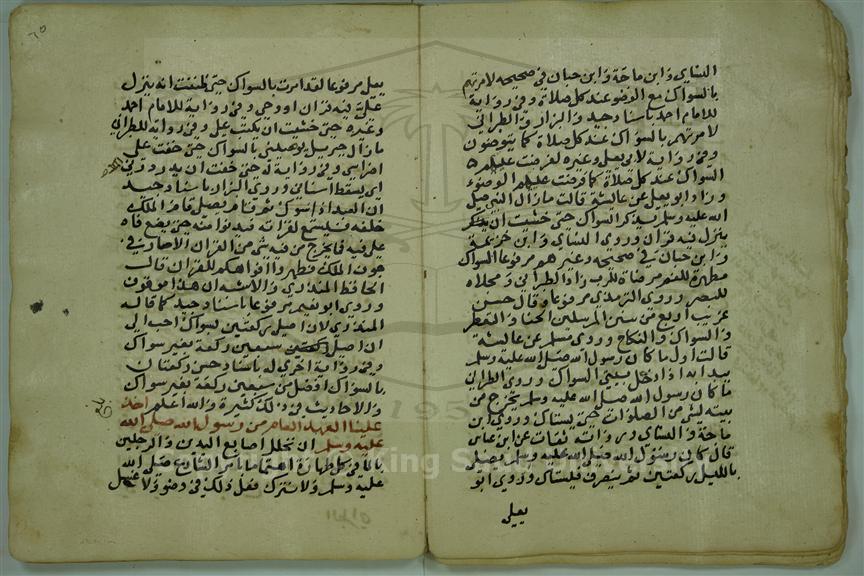 النسائي وابن ماجة وابن حبان في صحيحه لامرتهم
بالسواك مع الوضوء عند كل صلاة وفي رواية
للامام احمد باسناد جيد والبزار والطبراني
لامرتهم بالسواك عند كل صلاة كما يتوضون
وفي رواية لابي يعلى وغيره لفرضت عليهم
السواك عند كل صلاة كما فرضت عليهم الوضوء
وزاد ابو يعلى عن عائشة قالت ما زال النبي صلى
الله عليه وسلم يذكر السواك حتى خشيت ان
ينزل فيه قران وروى النسائي وابن خزيمة
وابن حبان في صحيحه وغيرهم مرفوعا السواك
مطهرة للفم مرضاة للرب زاد الطبراني ومجلاه
للبصر وروى الترمذي مرفوعا وقال حسن
غريب اربع من سنن المرسلين الحنا والتعطر
والسواك والنكاح وروى مسلم عن عائشة
قالت اول ما كان رسول الله صلى الله عليه وسلم
يبدا به اذا دخل بيته السواك وروى الطبراني
ما كان رسول الله صلى الله عليه وسلم يخرج من
بيته لشئ من الصلوات حتى يستاك وروى ابن
ماجة والنسائي ورواته ثقات عن ابن عباس
قال كان رسول الله صلى الله عليه وسلم يصلي
بالليل ركعتين ثم ينصرف فيستاك وروى ابو
يعلى
٦٥
يعلى مرفوعا لقد امرت بالسواك حتى ظننت انه ينزل
علي فيه قران او وحي وفي رواية للامام احمد
وغيره حتى خشيت ان يكتب علي وفي رواية للطبراني
ما زال جبريل يوصيني بالسواك حتى خفت على
اضراسي وفي رواية له حتى خفت ان يدردني
اي يسقط اسناني وروى البزار باسناد جيد
ان العبد اذا تسوك ثم قام يصلي قام الملك
خلفه فيستمع لقراته فيدنو منه حتى يضع فاه
على فيه فما يخرج من فيه شئ من القران الا صار في
جوف الملك فطهروا افواهكم للقران قال
الحافظ المنذري والاشبه ان هذا موقوف
وروى ابو نعيم مرفوعا باسناد جيد كما قاله
المنذري لان اصلي ركعتين بسواك احب الي
ان اصلي سبعين ركعة بغير سواك
وفي رواية اخرى له باسناد حسن ركعتان
بالسواك افضل من سبعين ركعة بغير سواك
والاحاديث في ذلك كثيرة والله اعلم اخذ
علينا العهد العام من رسول الله صلى الله
عليه وسلم ان نخلل اصابع اليدين والرجلين
بالما في كل طهارة اهتماما بامر الشارع صلى الله
عليه وسلم ولا نترك فعل ذلك في وضوء ولا غسل